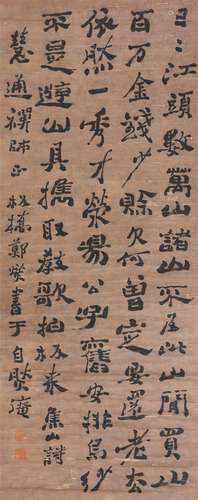 日々江頭數萬山諸山不及此山閒買山
百万金錢少賒欠何曾定要還老去
依然一秀才滎陽公子舊安排烏紗
不是遊山具攜取教歌拍板來焦山詩
慧通禪師正板橋鄭燮書于自然庵